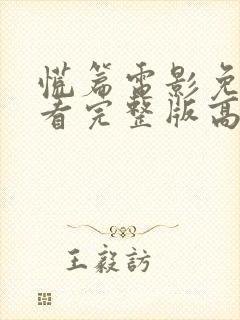 慌篇雷影免
看完整版高
王毅訪